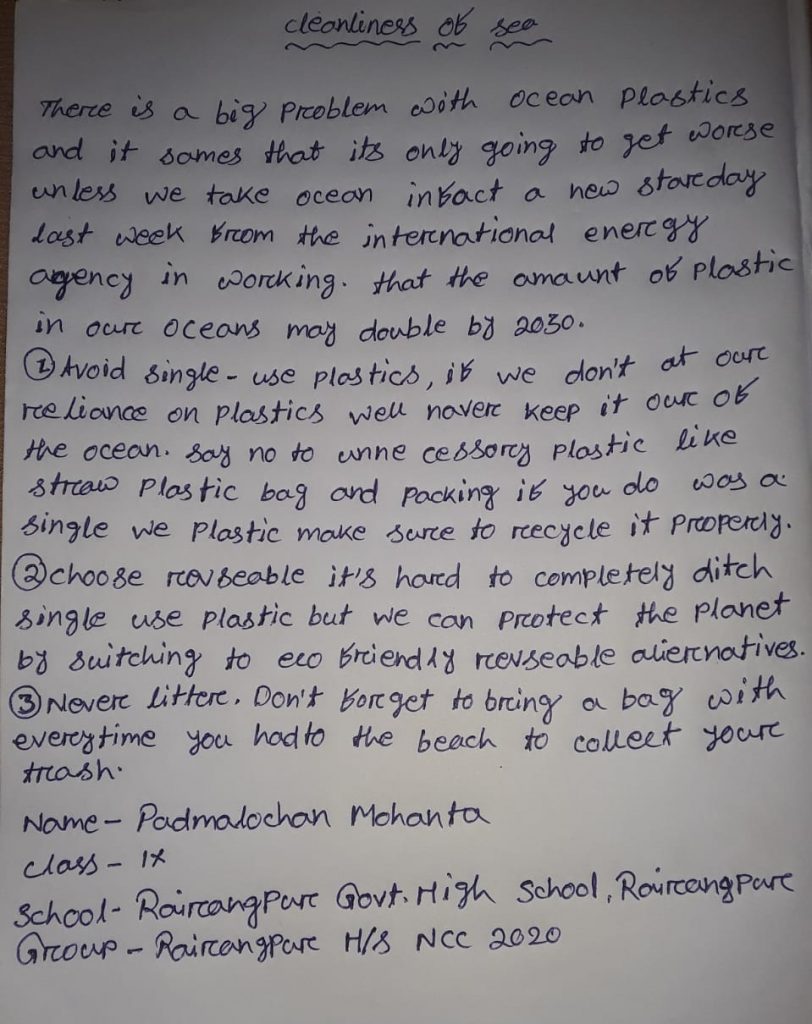 cleanliness of sea
There is a big problem with ocean plastics
and it sames that its only going to get worse
unless we take ocean infact a new stareday
last week from the international energy
agency in working. that the amaunt of plastic
in our oceans may double by 2030.
① Avoid single-use plastics, if we don't at our
reeliance on plastics well naver keep it our of
the ocean. say no to unne cessory plastic like
straw plastic bag and packing if you do was a
single we plastic make sure to recycle it properly.
② choose reuseable it's hard to completely ditch
single use plastic but we can protect the planet
by suitching to eco friendly reuseable aliernatives.
③ Never litter. Don't forget to bring a bag with
everytime you hadto the beach to collect your
trash.
Name - Padmalochan Mohanta
class - IX
School - Rairangpur Govt. High School, Rairangpur
Group - Rairangpur H/S NCC 2020